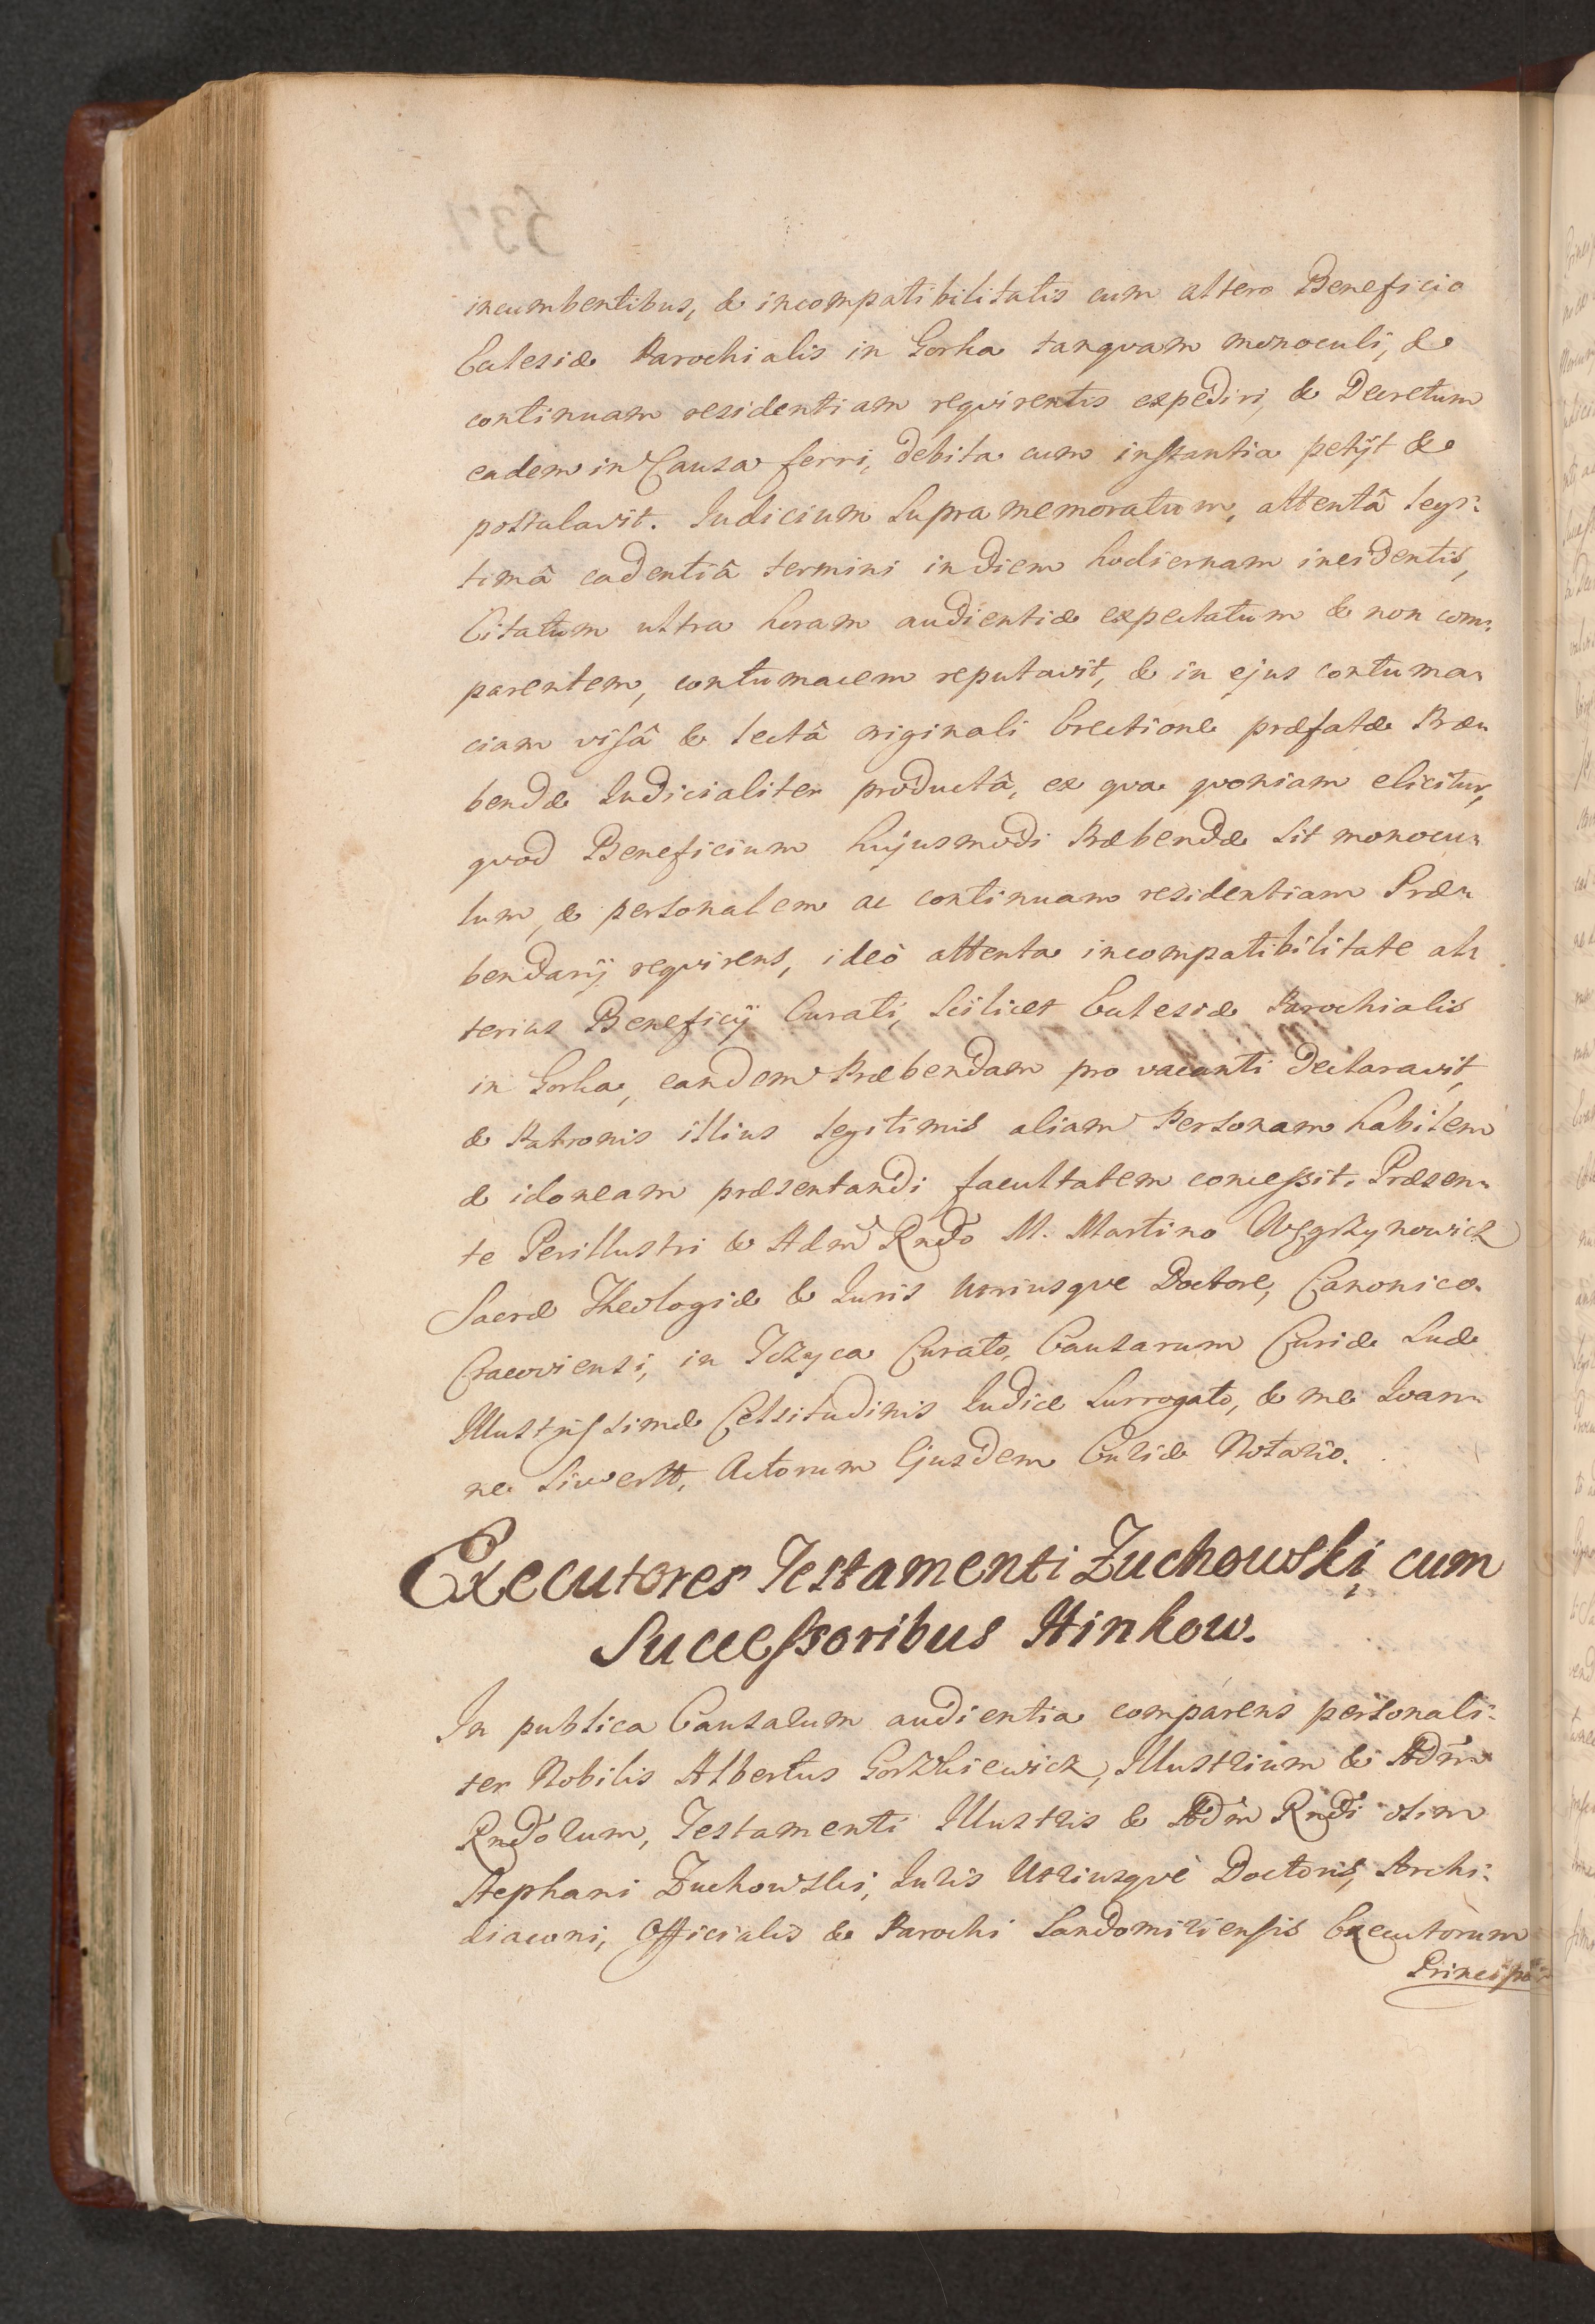 incumbentibus, & incompatibilitatis cum altero Beneficio
Ecclesiæ Parochialis in Gorka tanqvam monoculi, &
continuam residentiam reqvirentis expediri, & Decretum
eadem in Causa ferri, debita cum instantia petÿt &
postulavit. Iudicium supra memoratum, attentâ legi-
timâ cadentiâ termini in diem hodiernam incidentis,
Citatum ultra horam audientiæ expectatum & non com-
parentem, contumacem reputavit, & in ejus contuma-
ciam visâ & lectâ originali Erectione præfatæ Præ-
bendæ Iudicialiter productâ, ex qva qvoniam elicitur,
qvod Beneficium hujusmodi Præbendæ sit monocu-
lum, & personalem ac continuam residentiam Præ-
bendarÿ reqvirens, ideò attenta incompatibilitate al-
terius Beneficÿ Curati, scilicet Ecclesiæ Parochialis
in Gorka, eandem Præbendam pro vacanti declaravit,
& Patronis illius legitimis aliam Personam habilem
& idoneam præsentandi facultatem concessit. Præsen-
te Perillustri & Adm Rndo M. Martino Węgrzynowicz
Sacræ Theologiæ & Iuris Utriusqve Doctore, Canonico
Cracoviensi, in Jczyca Curato, Causarum Curiæ Suæ
Illustrissimæ Celsitudinis Iudice Surrogato, & me Ioan-
ne Siwertt, Actorum Ejusdem Curiæ Notario.
Executores Testamenti Zuchowski cum
Successoribus Hinkow.
In publica Causarum audientia comparens personali-
ter Nobilis Albertus Gorzkiewicz, Illustrium & Adm
Rndorum, Testamenti Illustris & Adm Rndi olim
Stephani Zuchowski, Iuris Utriusqve Doctoris, Archi-
diaconi, Officialis & Parochi Sandomiriensis Executorum